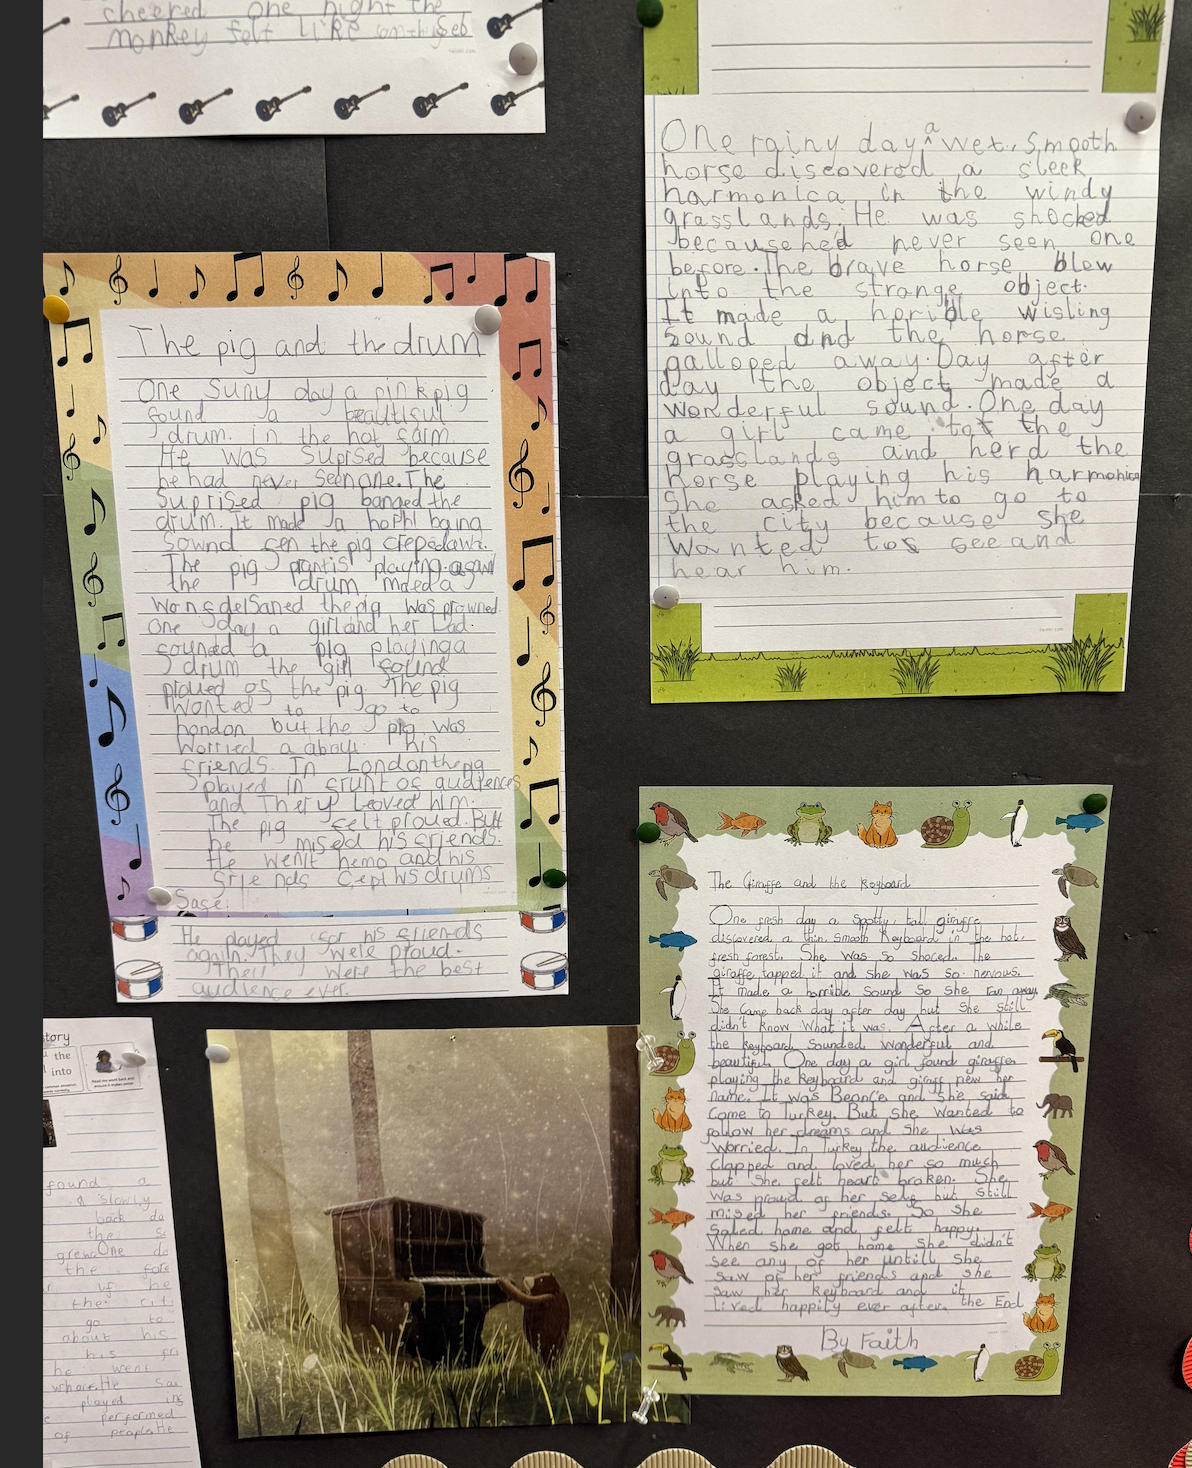 cheered one night the
monkey felt like
The pig and the drum
One Suny day a pink pig
found a beautiful
drum. in the hot farm.
He was Suprised because
he had never Seen one. The
Suprised pig banged the
drum. it made a
Sownd the pig
The pig playing
the drum
the pig was
One day a girl and her Dad
pig playing a
drum the girl
of the pig. The pig
Wanted to go to
London but the pig was
Worried a about his
friends. In London the pig
played in of audiences
and They Loved him.
The pig felt proued. But
he mised his friends.
He and his
his drums
Safe.
He played for his friends
again. They were proud.
Their were the best
audience ever.
One rainy day a wet, Smooth
horse discovered a sleek
harmonica in the windy
grasslands. He was shocked
because he'd never seen one
before. The brave horse blew
into the strange object.
It made a horible wisling
Sound and the horse
galloped away. Day after
day the object made a
wonderful sound. One day
a girl came to the
grasslands and herd the
horse playing his harmonica
She asked him to go to
the city because she
Wanted to see and
hear him.
The Giraffe and the Keyboard
One fresh day a Spotty, tall giraffe
discovered a thin, smooth Keyboard in the hot,
fresh forest. She was so shoced. The
giraffe tapped it and she was so nervous.
It made a horrible Sound So she ran away.
She came back day after day but She still
didn't know What it was. After a while
the keyboard Sounded wonderful and
beautiful. One day a girl found giraffe
playing the Keyboard and giraff new her
name. It was and She said
Come to Turkey. But she Wanted to
follow her dreams and She Was
Worried. In Turkey the audience
Clapped and loved her so much
but She felt heart broken. She
was proud of her self but Still
mised her friends. So She
Saled home and felt happy.
When She got home She didn't
see any of her untill She
Saw of her friends and She
Saw her Keyboard and it
Lived happily ever after. the End
By Faith
story
the
into
found a
a slowly
back da
the
One do
the
if he
the
go to
about his
his fri
he went
He
played
performed
of people He